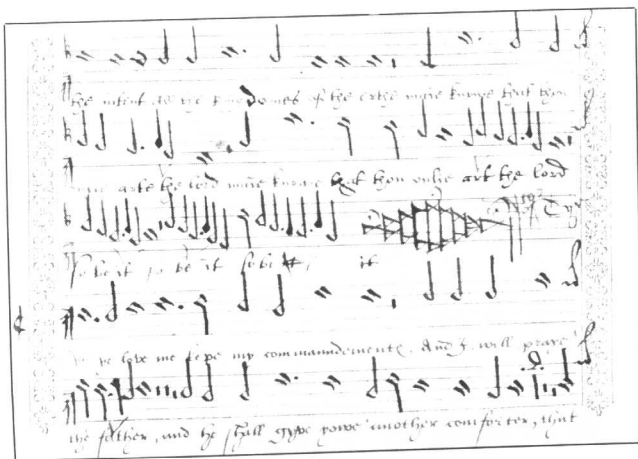 the intent all the kingdomes of the erthe maie knowe that thou
onlie arte the lord maie knowe that thou onlie art the lord
so be it so be it so be it
yf ye love me kepe my commaundements. And I will praye
the father, and he shall gyve yowe another comforter, that